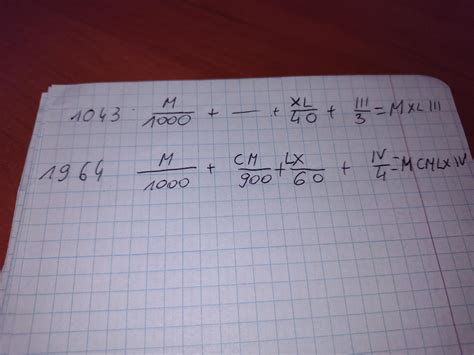 1043 M/1000 + — + XL/40 + III/3 = MXLIII
1964 M/1000 + CM/900 + LX/60 + IV/4 = MCMLXIV